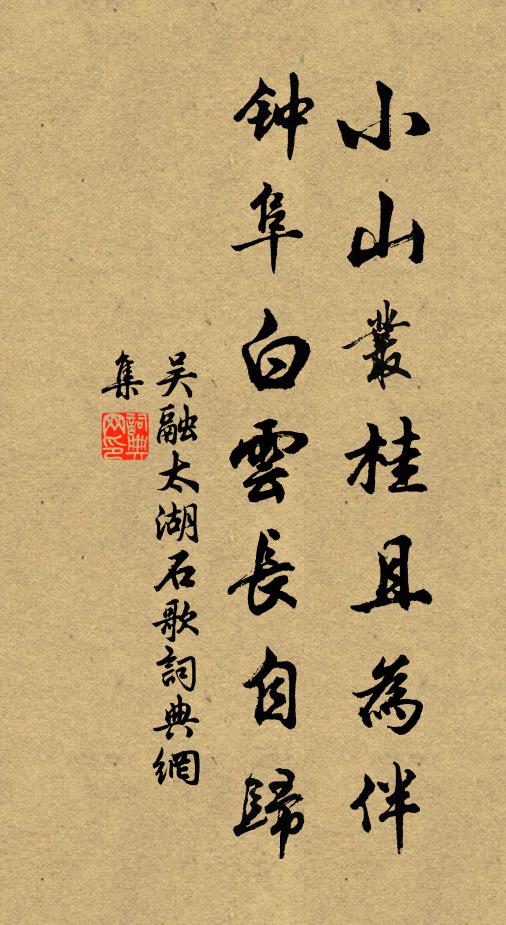 小山叢桂且為伴
钟阜白雲長自歸
吴融太湖石歌詞典網
集
詞典网印